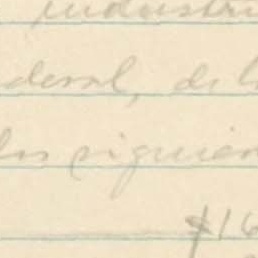 industri
deral, de l
los siguien
$16